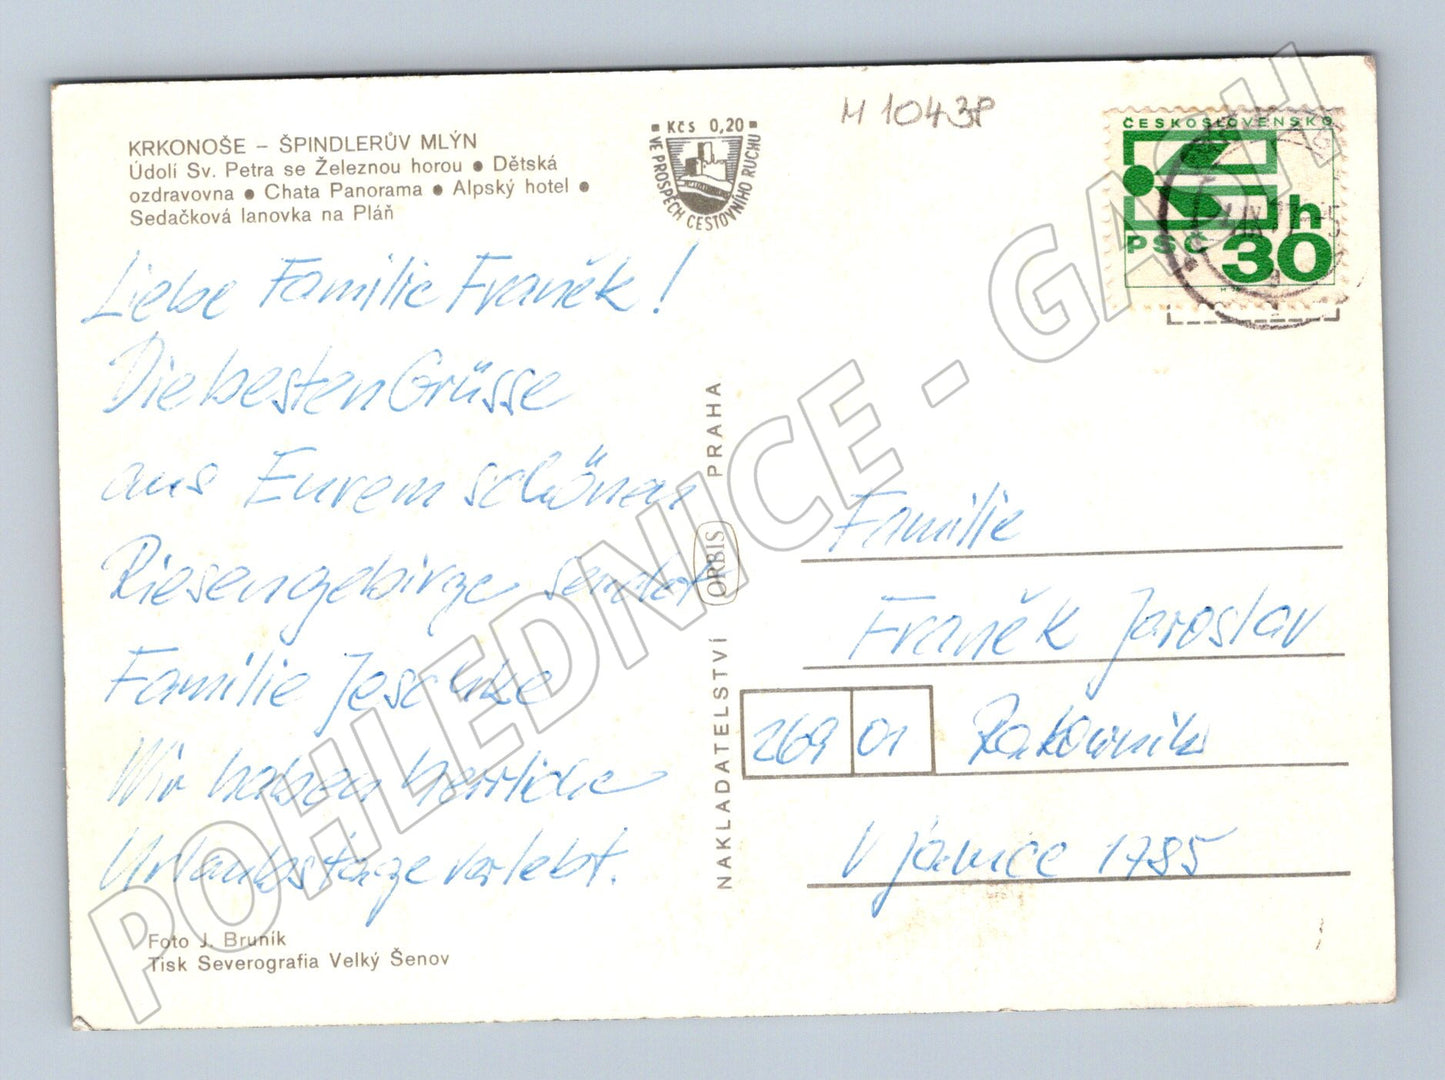 KRKONOŠE – ŠPINDLERŮV MLÝN
Údolí Sv. Petra se Železnou horou ● Dětská
ozdravovna ● Chata Panorama ● Alpský hotel ●
Sedačková lanovka na Pláň
Kčs 0,20
VE PROSPĚCH CESTOVNÍHO RUCHU
M 1043P
ČESKOSLOVENSKO
PSČ 30 h
Liebe Familie Franěk!
Die besten Grüsse
aus Eurem schönen
Riesengebirge sendet
Familie Jeschke
Wir haben herrliche
Urlaubstage verlebt.
Foto J. Bruník
Tisk Severografia Velký Šenov
NAKLADATELSTVÍ ORBIS PRAHA
Familie
Franěk Jaroslav
269 01 Rakovnik
V jamce 1785
POHLEDNICE - GASH